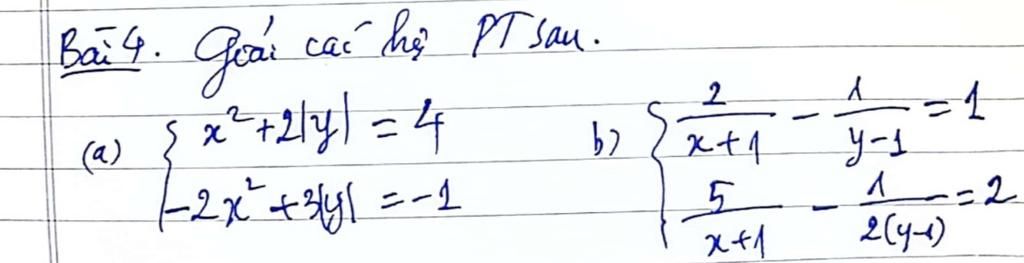 Bài 4. Giải các hệ PT sau.
(a) { x² + 2|y| = 4
-2x² + 3|y| = -1
b) { 2/(x+1) - 1/(y-1) = 1
5/(x+1) - 1/(2(y-1)) = 2